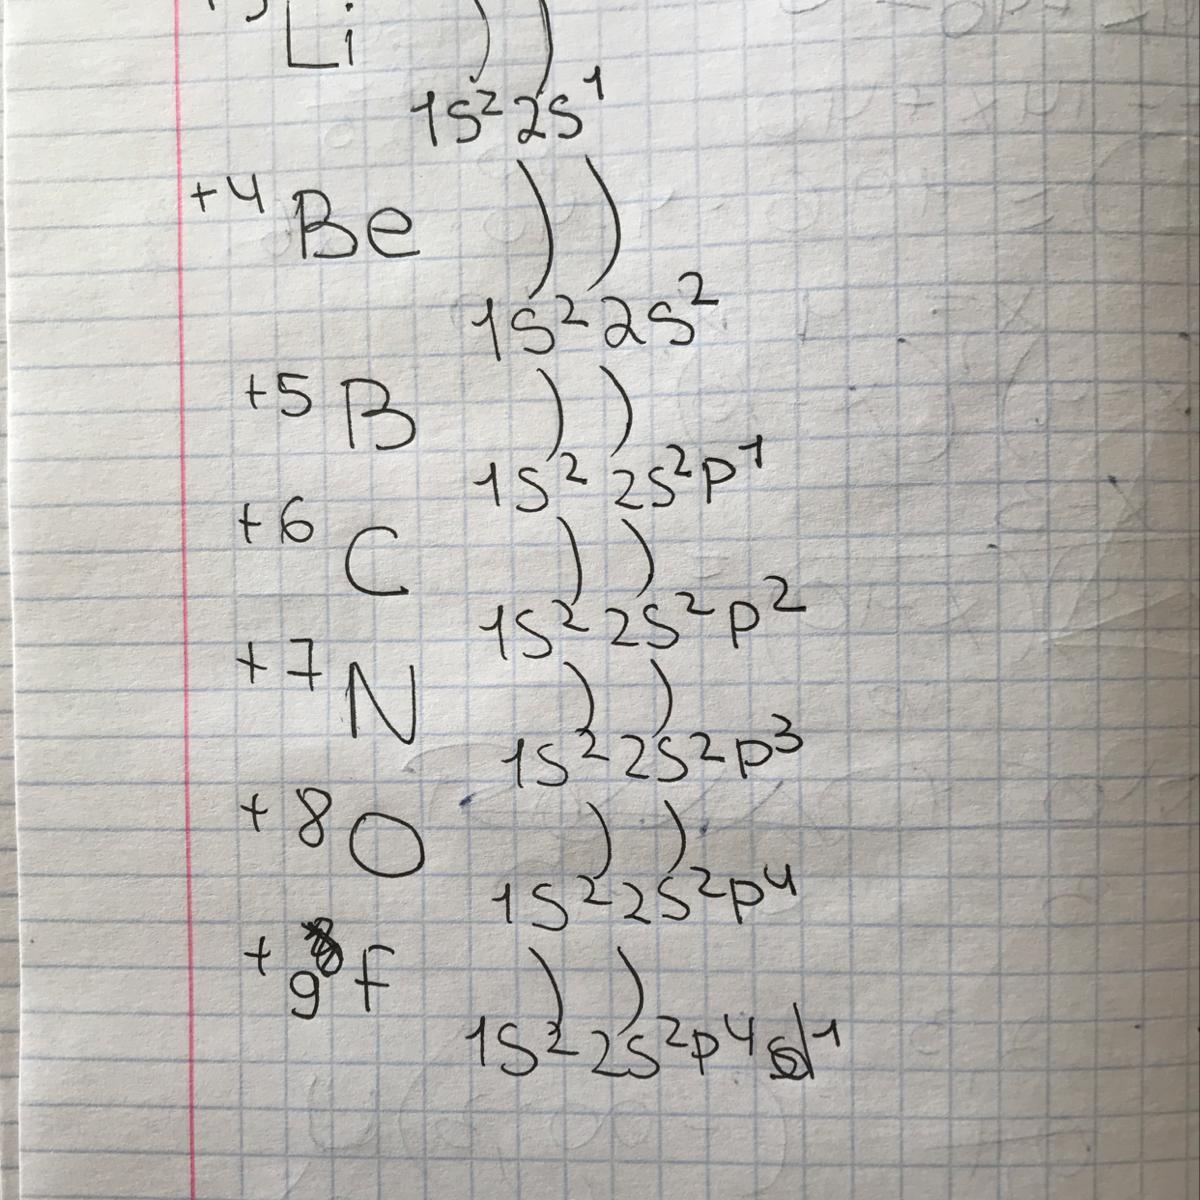 +3 Li ))
1s² 2s¹
+4 Be ))
1s² 2s²
+5 B ))
1s² 2s²p¹
+6 C ))
1s² 2s²p²
+7 N ))
1s² 2s²p³
+8 O ))
1s² 2s²p⁴
+9 F ))
1s² 2s²p⁴d¹